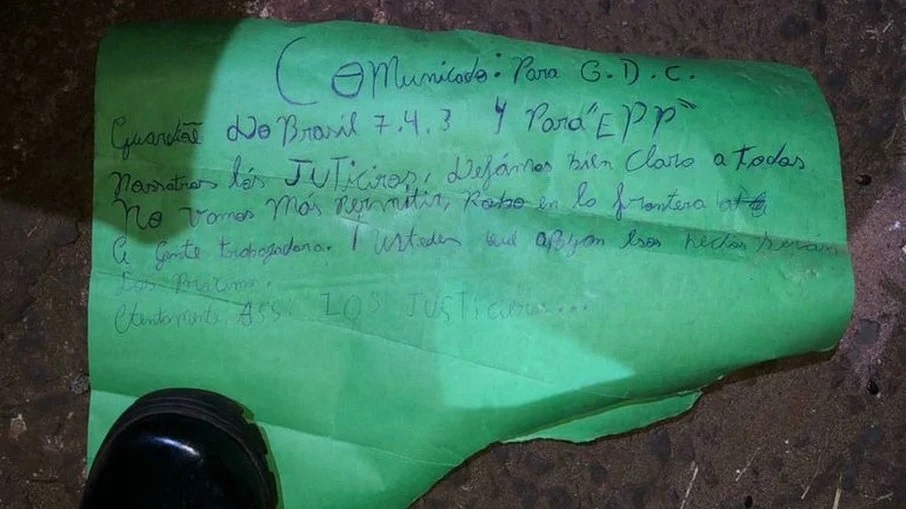 Comunicado: Para G.D.C.
Guardiāe do Brasil 7.4.3 y Para "EPP"
Nassotras lós JUTiciros, dejámos bien claro a todas
No vamos mas permitir, Robo en la frontera
a gente trabajadora. Y ustedes que apoyan esos hechos seran
Los Proximo.
Atentamente, ASS: LOS JUSTicieros...